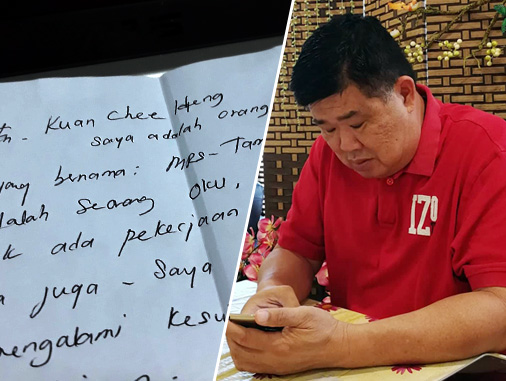 - Kuan Chee Heng
saya adalah orang
yang bernama: MRS - Tam
alah seorang OKU,
k ada pekerjaan
a juga - Saya
mengalami kesu
IZº